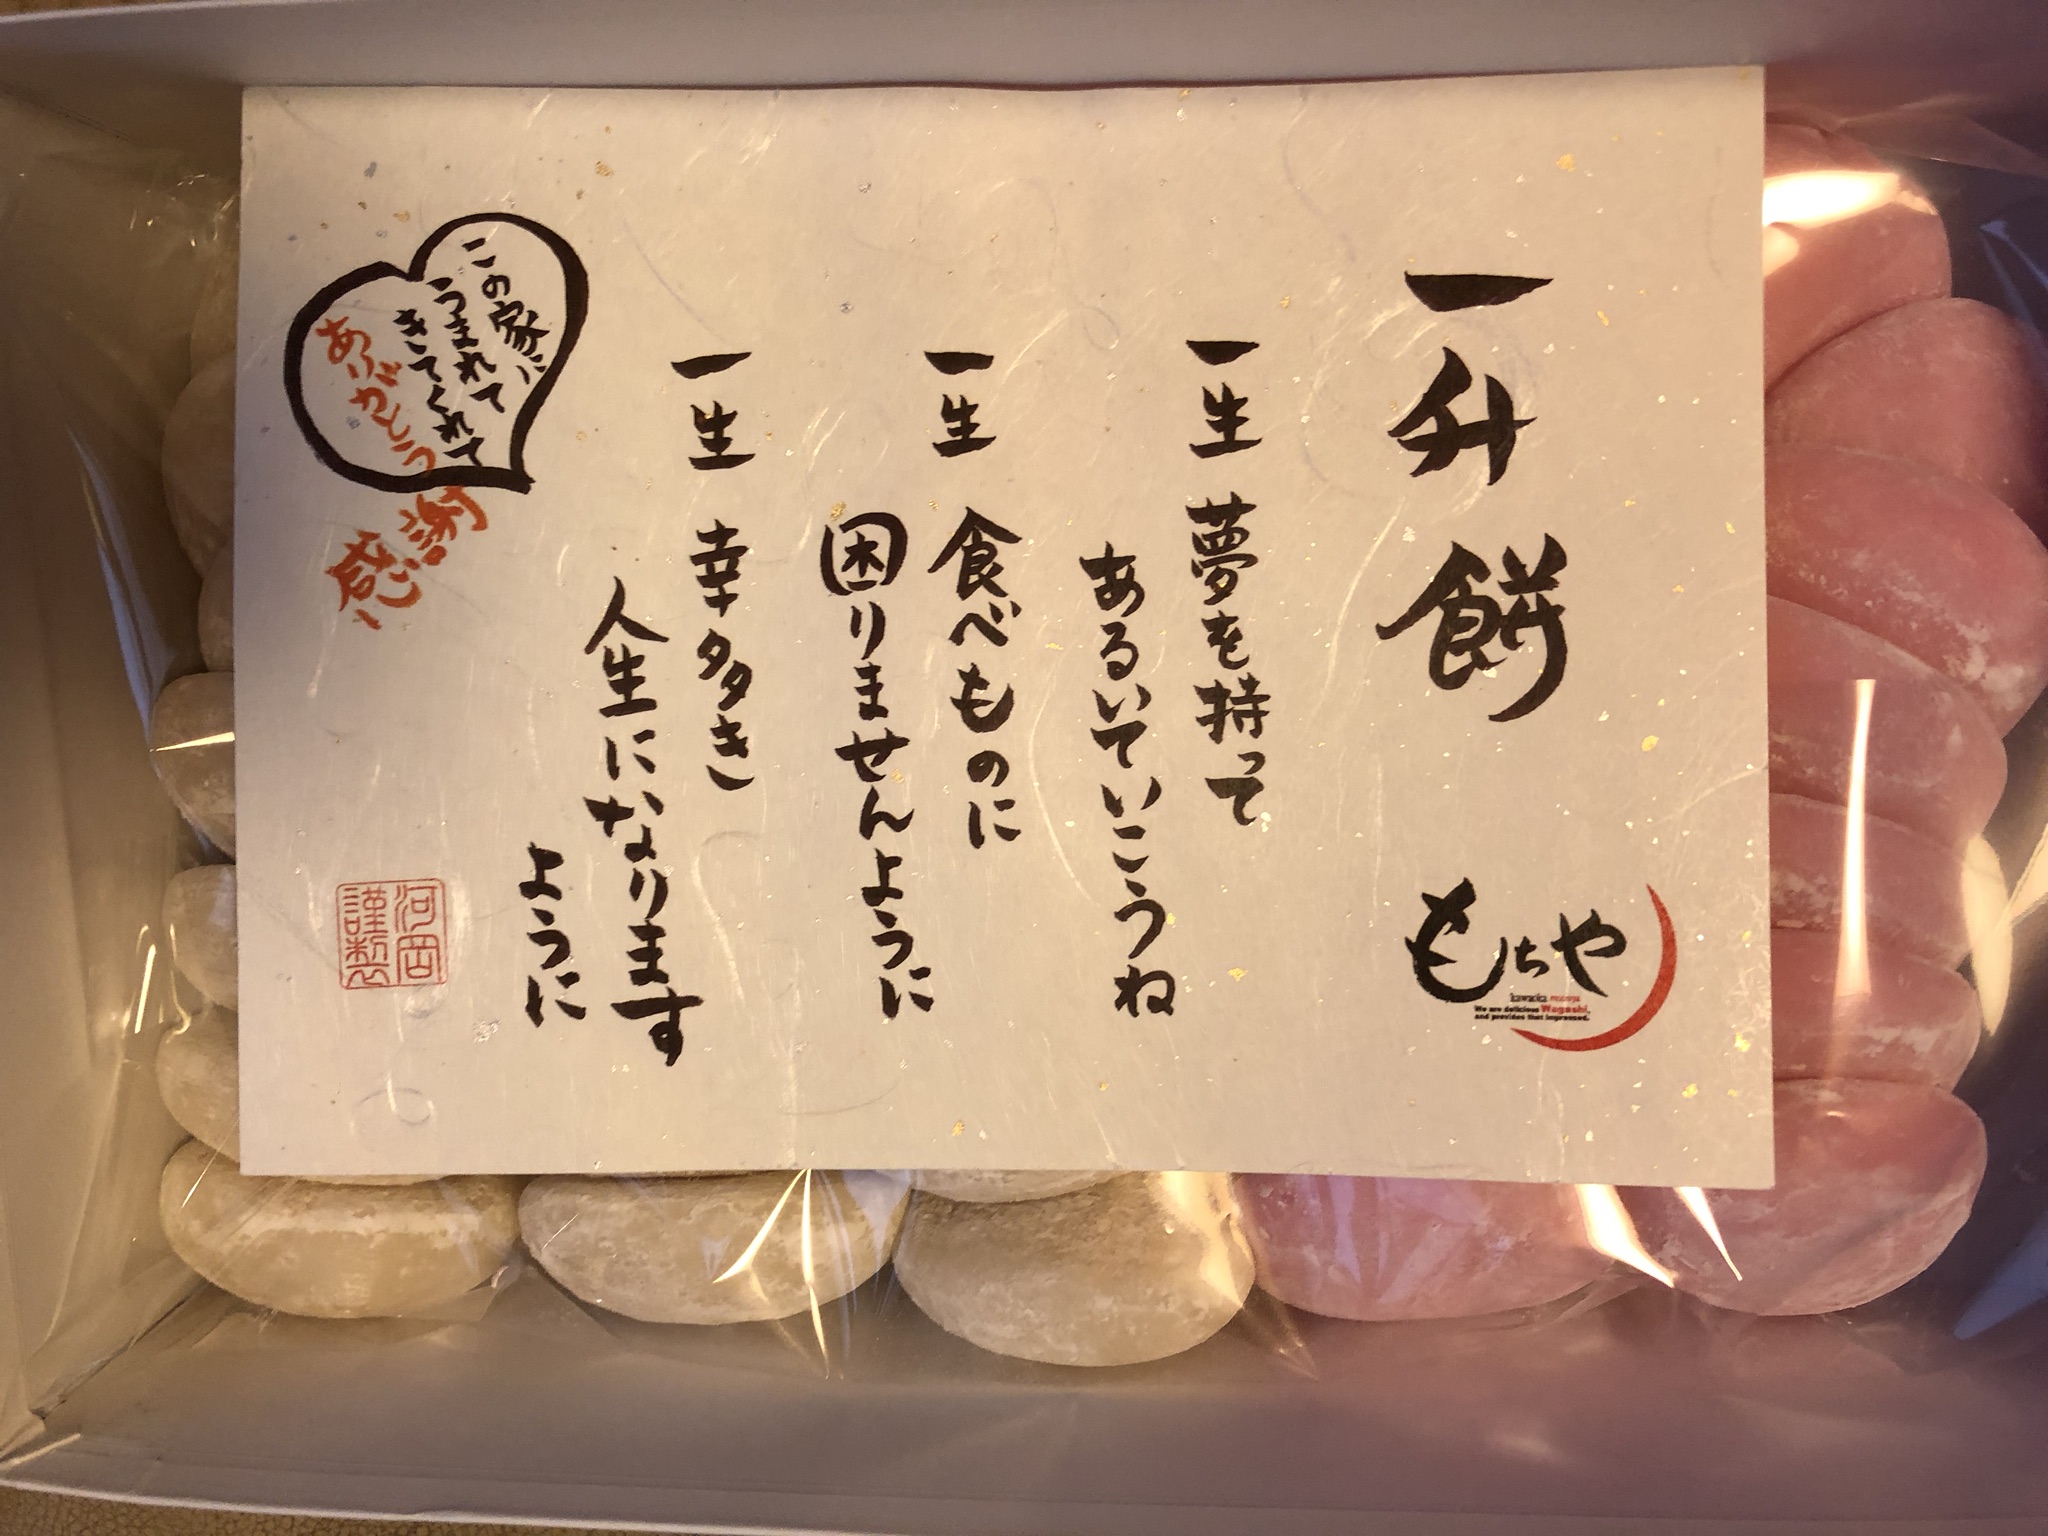 一升餅
一生 夢を持って
あるいていこうね
一生 食べものに
困りませんように
一生 幸多き
人生になります
ように
この家に
うまれて
きてくれて
ありがとう
感謝
もちや
We are delicious Wagashi,
and provides that impressed.
河岡
謹製